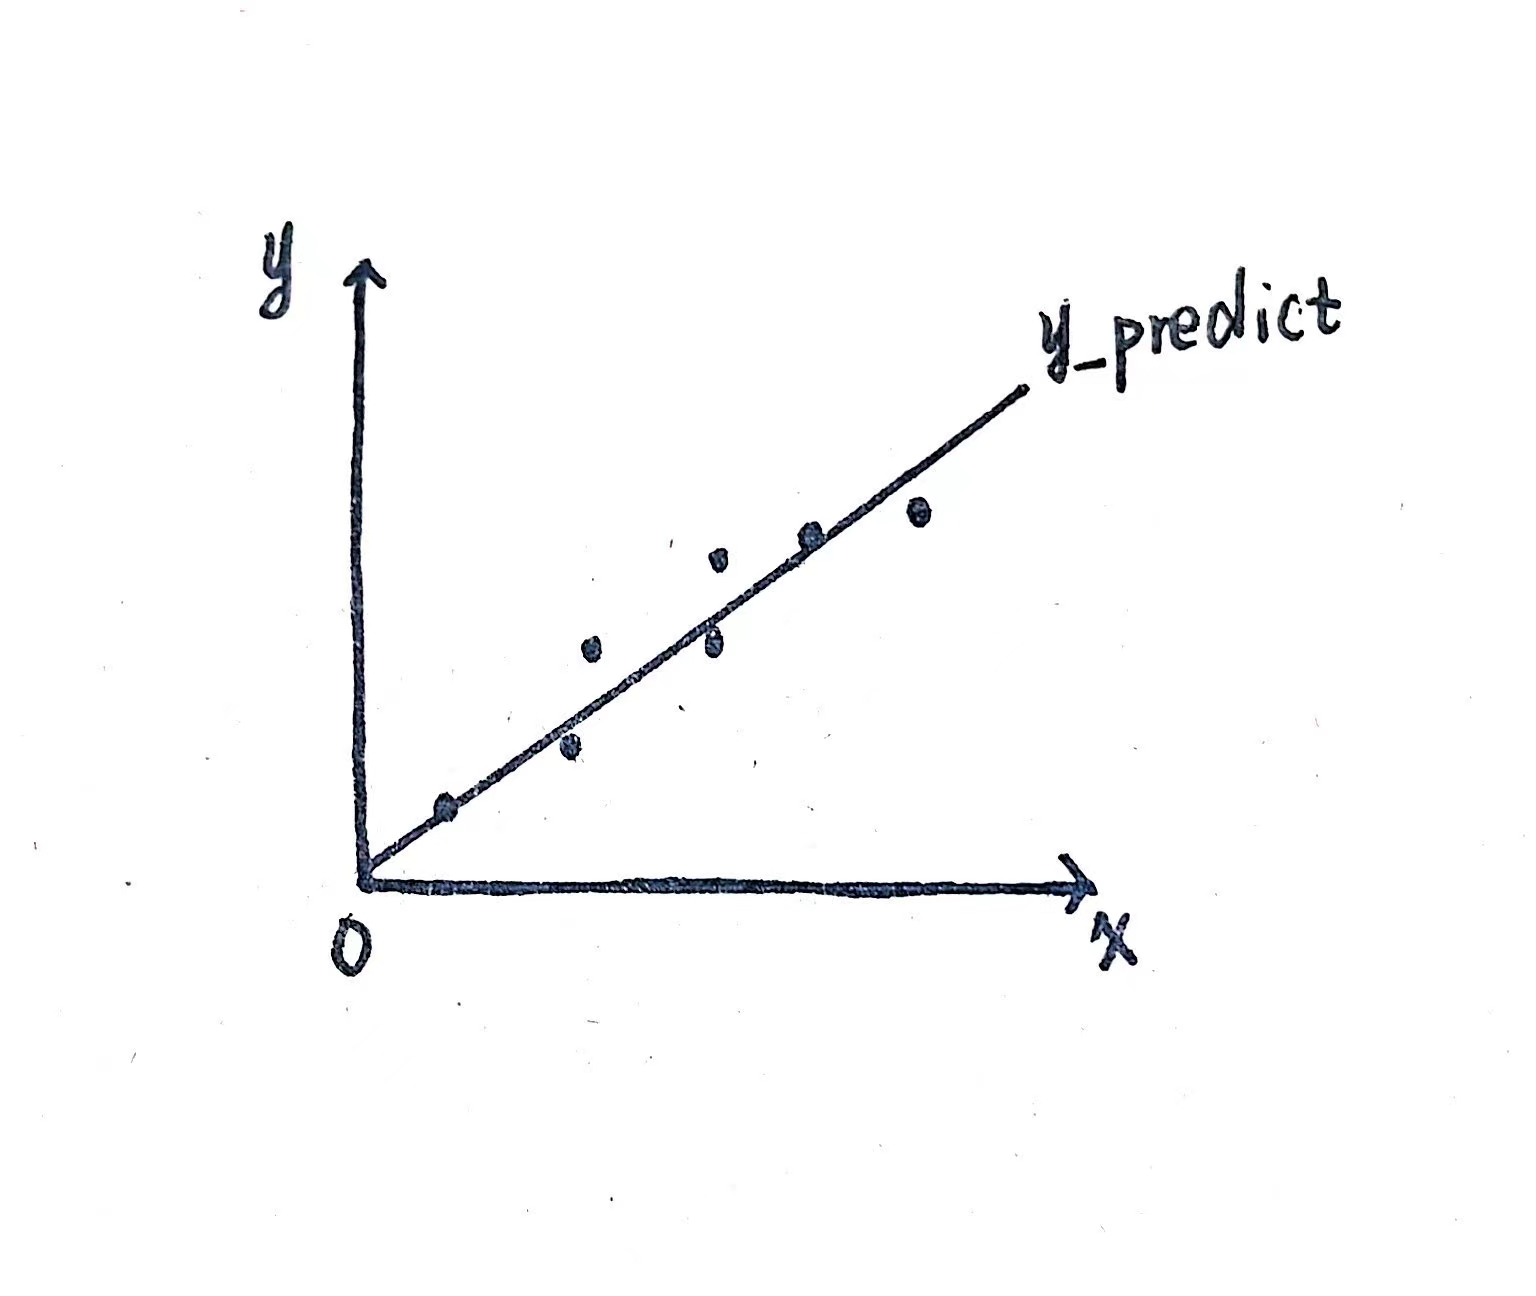 y
y_predict
0
x